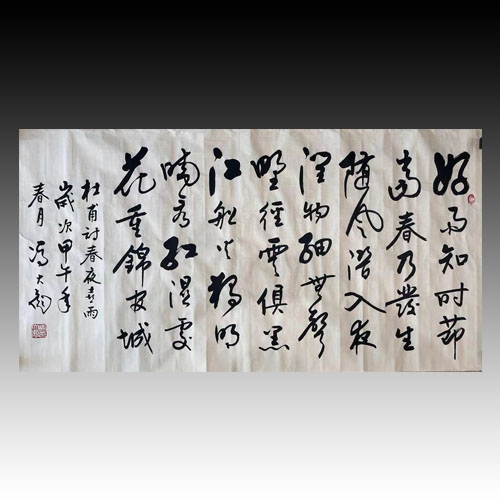 好雨知时節
當春乃發生
随风潜入夜
润物细無聲
野徑雲俱黑
江船火独明
晓看红湿處
花重錦官城
杜甫诗春夜喜雨
歲次甲午年
春月冯大